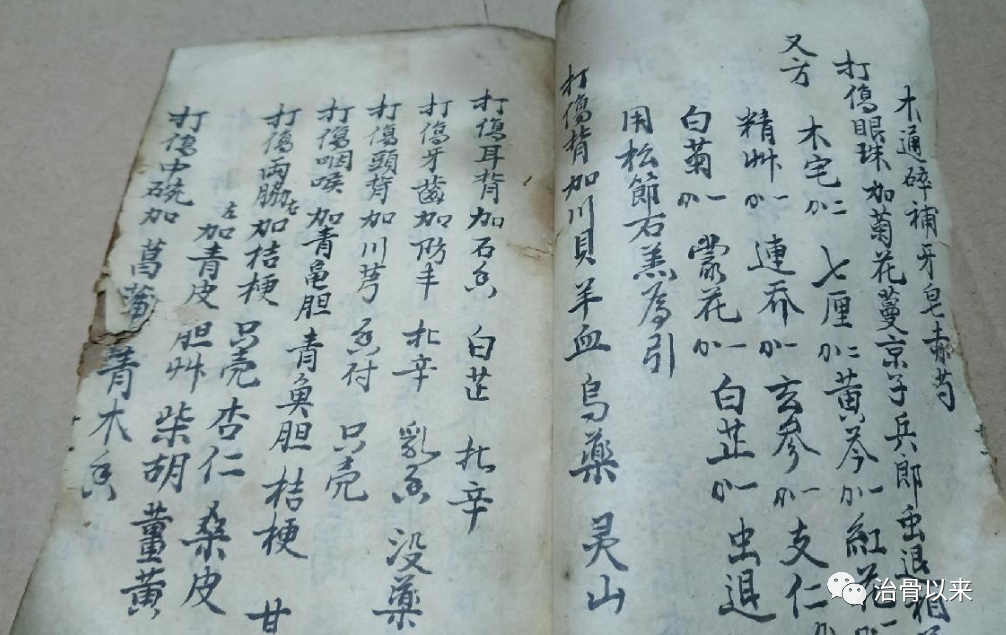 木通碎補牙皂赤芍
打傷眼珠加菊花蔓京子兵郎虫退
又方 木宅 七厘 黄芩 紅花
精艸 連乔 玄参 支仁
白菊 蒙花 白芷 虫退
用松節石羔為引
打傷背加川貝羊血烏藥灵山
打傷耳背加石香 白芷 北辛
打傷牙齒加防丰 北辛 乳香 没藥
打傷頭脊加川芎 香付 只壳
打傷咽喉加青黾胆 青魚胆 桔梗 甘
打傷兩脇右加桔梗 只壳 杏仁 桑皮
左加青皮 胆艸 柴胡 薑黄
打傷中碗加菖蒲 青木香
治骨以来